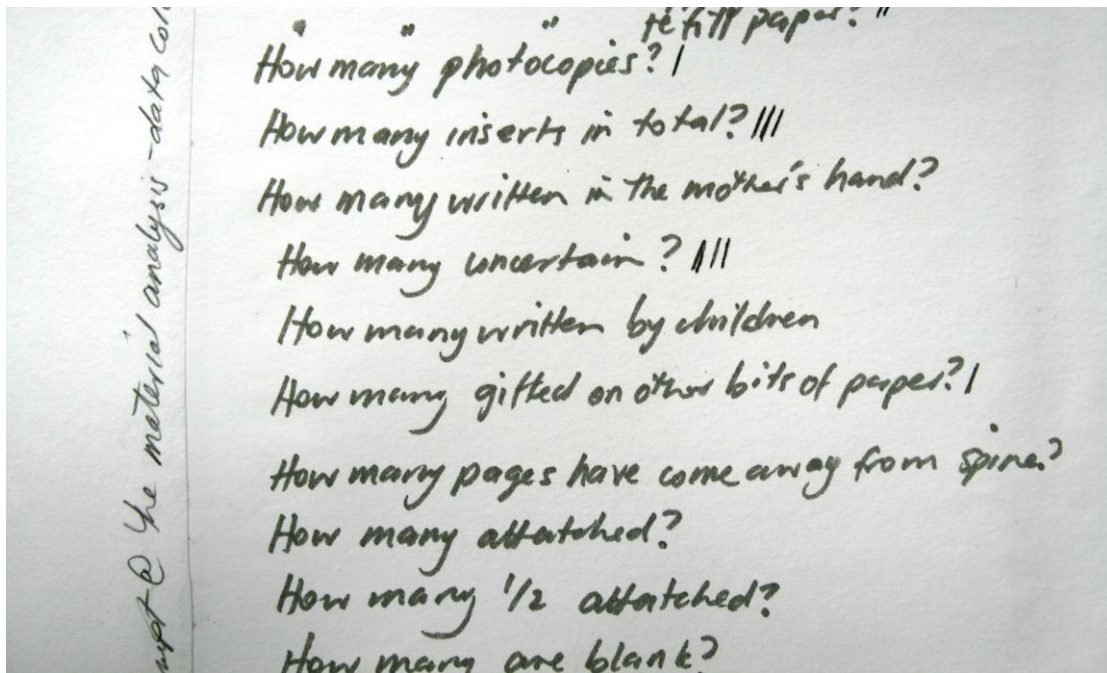 " " " refill paper? "
How many photocopies? |
How many inserts in total? |||
How many written in the mother's hand?
How many uncertain? |||
How many written by children
How many gifted on other bits of paper? |
How many pages have come away from spine?
How many attatched?
How many 1/2 attatched?
How many are blank?
@ the material analysis - data